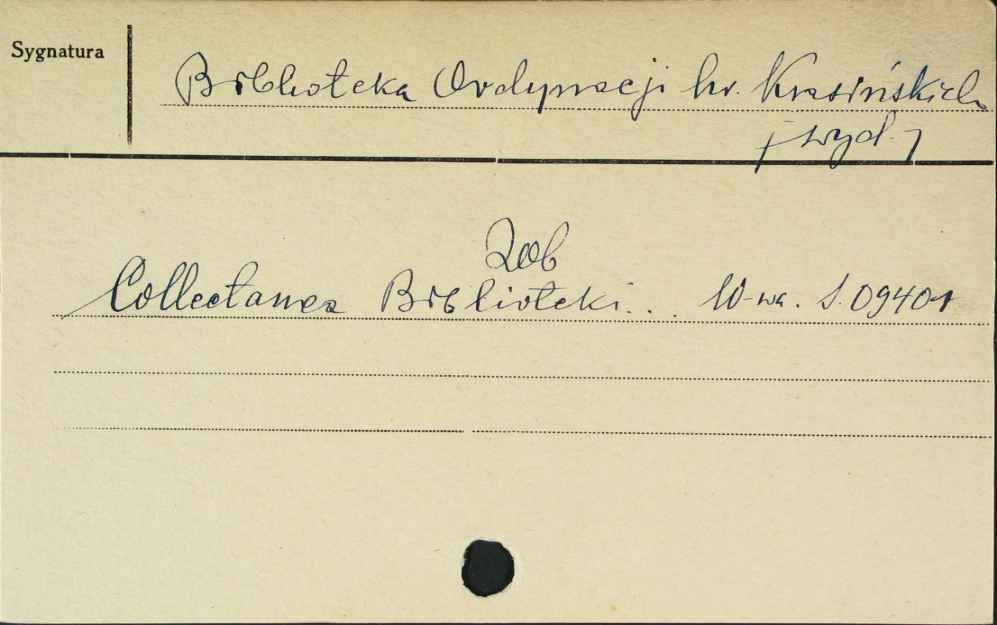 Sygnatura
Biblioteka Ordynacji hr. Krasińskich
[wyd.]
Zob
Collectanea Biblioteki... W-wa. S.09401